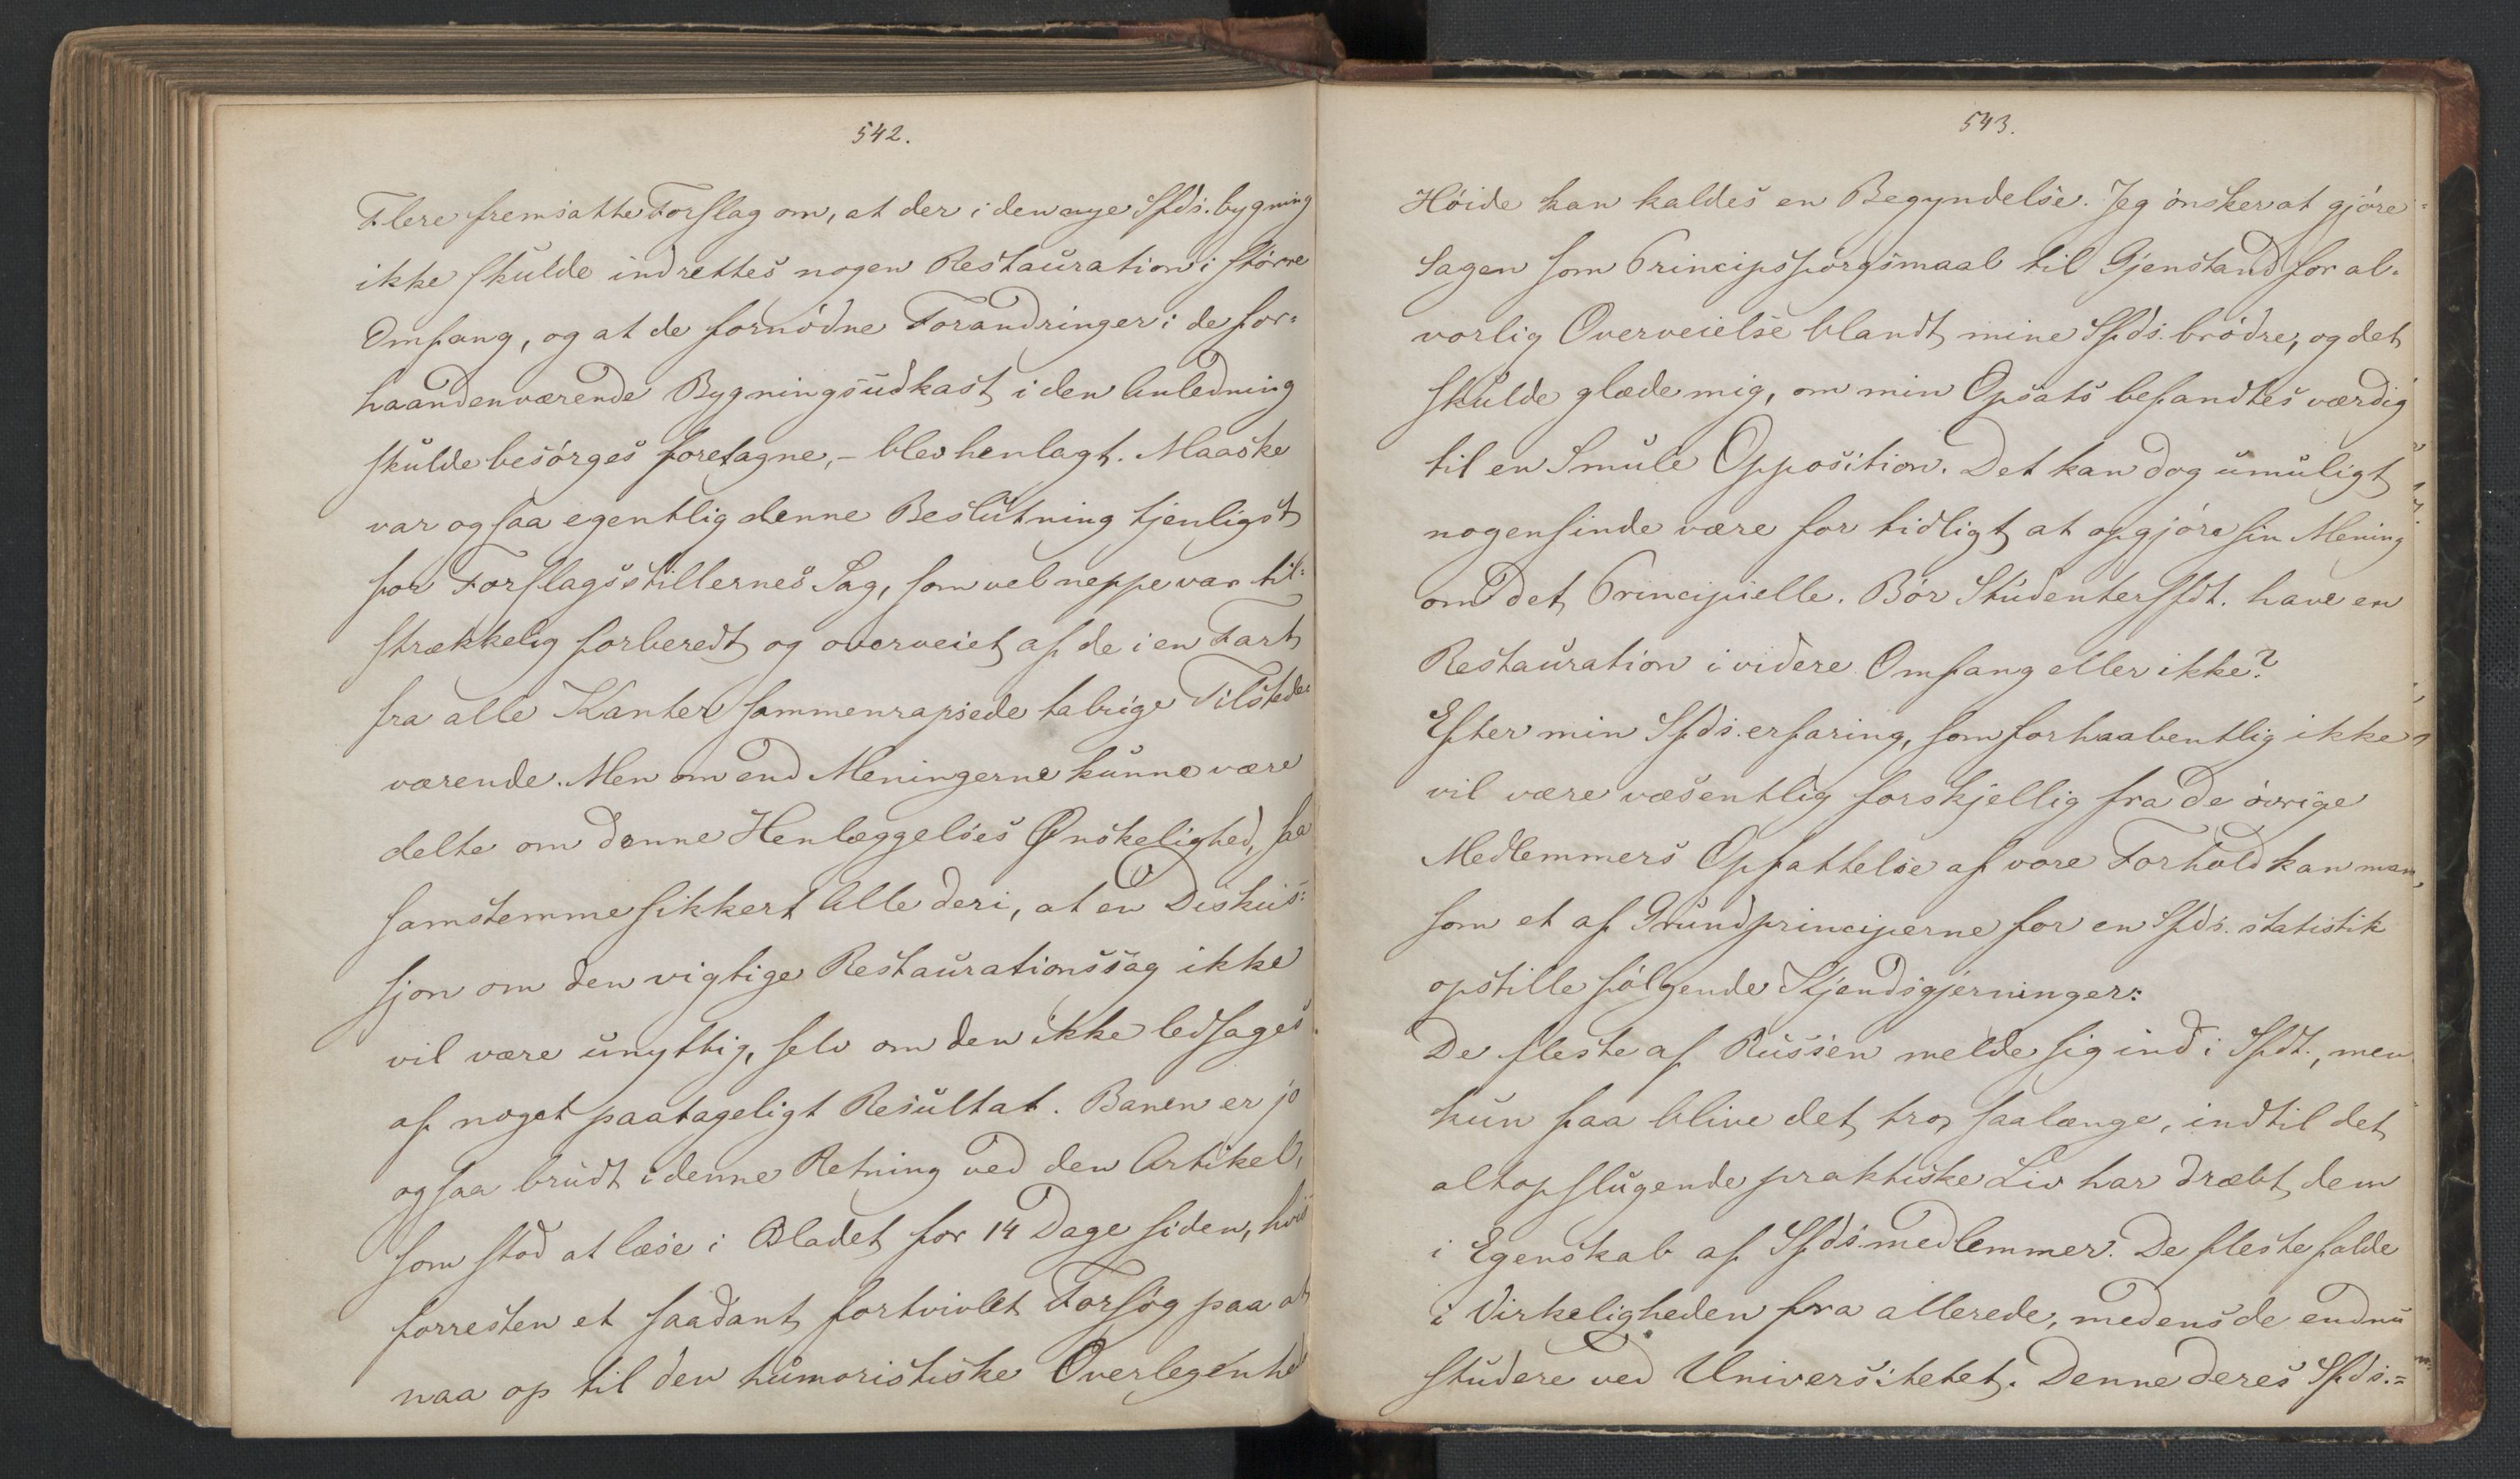 542.
Flere fremsatte Forslag om, at der i den nye Sfds. bygning
ikke skulde indrettes nogen Restauration i større
Omfang, og at de fornødne Forandringer i de for-
haandenværende Bygningsudkast i den Anledning
skulde besørges foretagne, - blev henlagt. Maaske
var ogsaa egentlig denne Beslutning tjenligst
for Forslagsstillernes Sag, som vel neppe var til-
strækkelig forberedt og overveiet af de i en Fart
fra alle Kanter sammenrapsede talrige Tilstede
værende. Men om end Meningerne kunne være
delte om denne Henlæggelses Ønskelighed, saa
samstemme sikkert Alle deri, at en Diskus-
sjon om den vigtige Restaurationssag ikke
vil være unyttig, selv om den ikke ledsages
af noget paatageligt Resultat. Banen er jo
ogsaa brudt i denne Retning ved den Artikel,
som stod at læse i Bladet for 14 Dage siden, hvis
forresten et saadant fortvivlet Forsøg paa at
naa op til den humoristiske Overlegenhed
543.
Høide kan kaldes en Begyndelse. Jeg ønsker at gjøre
Sagen som Principspørgsmaal til Gjenstand for al-
vorlig Overveielse blandt mine Sfds. brødre, og det
skulde glæde mig, om min Opsats befandtes værdig
til en Smule Opposition. Det kan dog umuligt
nogensinde være for tidligt at opgjøre sin Mening
om det Principielle. Bør Studentersfdt. have en
Restauration i videre Omfang eller ikke?
Efter min Sfds. erfaring, som forhaabentlig ikke
vil være væsentlig forskjellig fra de øvrige
Medlemmers Opfattelse af vore Forhold kan man,
som et af Grundprinciperne for en Sfds. statistik
opstille følgende Kjendsgjerninger:
De fleste af Russen melde sig ind i Sfdt., men
kun faa blive det tro, saalænge, indtil det
altopslugende praktiske Liv har dræbt dem
i Egenskab af Sfdsmedlemmer. De fleste falde
i Virkeligheden fra allerede, medens de endnu
studere ved Universitetet. Denne deres Sfds.=